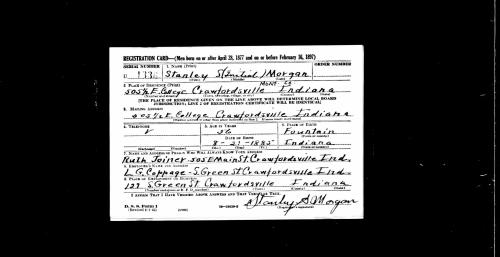 REGISTRATION CARD—(Men born on or after April 28, 1877 and on or before February 16, 1897)
SERIAL NUMBER 1. NAME (Print) ORDER NUMBER
U 133 Stanley S (Initial) Morgan
2. PLACE OF RESIDENCE (Print) MONT. CO.
505½ E. College Crawfordsville Indiana
[THE PLACE OF RESIDENCE GIVEN ON THE LINE ABOVE WILL DETERMINE LOCAL BOARD
JURISDICTION; LINE 2 OF REGISTRATION CERTIFICATE WILL BE IDENTICAL]
3. MAILING ADDRESS
505½ E. College Crawfordsville Indiana
4. TELEPHONE 5. AGE IN YEARS 6. PLACE OF BIRTH
56 Fountain
DATE OF BIRTH
8-21-1885 Indiana
7. NAME AND ADDRESS OF PERSON WHO WILL ALWAYS KNOW YOUR ADDRESS
Ruth Joiner 505 E Main St. Crawfordsville Ind.
8. EMPLOYER'S NAME AND ADDRESS
L. G. Coppage - S. Green St Crawfordsville Ind.
9. PLACE OF EMPLOYMENT OR BUSINESS
127 S. Green St Crawfordsville Indiana
I AFFIRM THAT I HAVE VERIFIED ABOVE ANSWERS AND THAT THEY ARE TRUE.
D. S. S. Form 1
Stanley S. Morgan